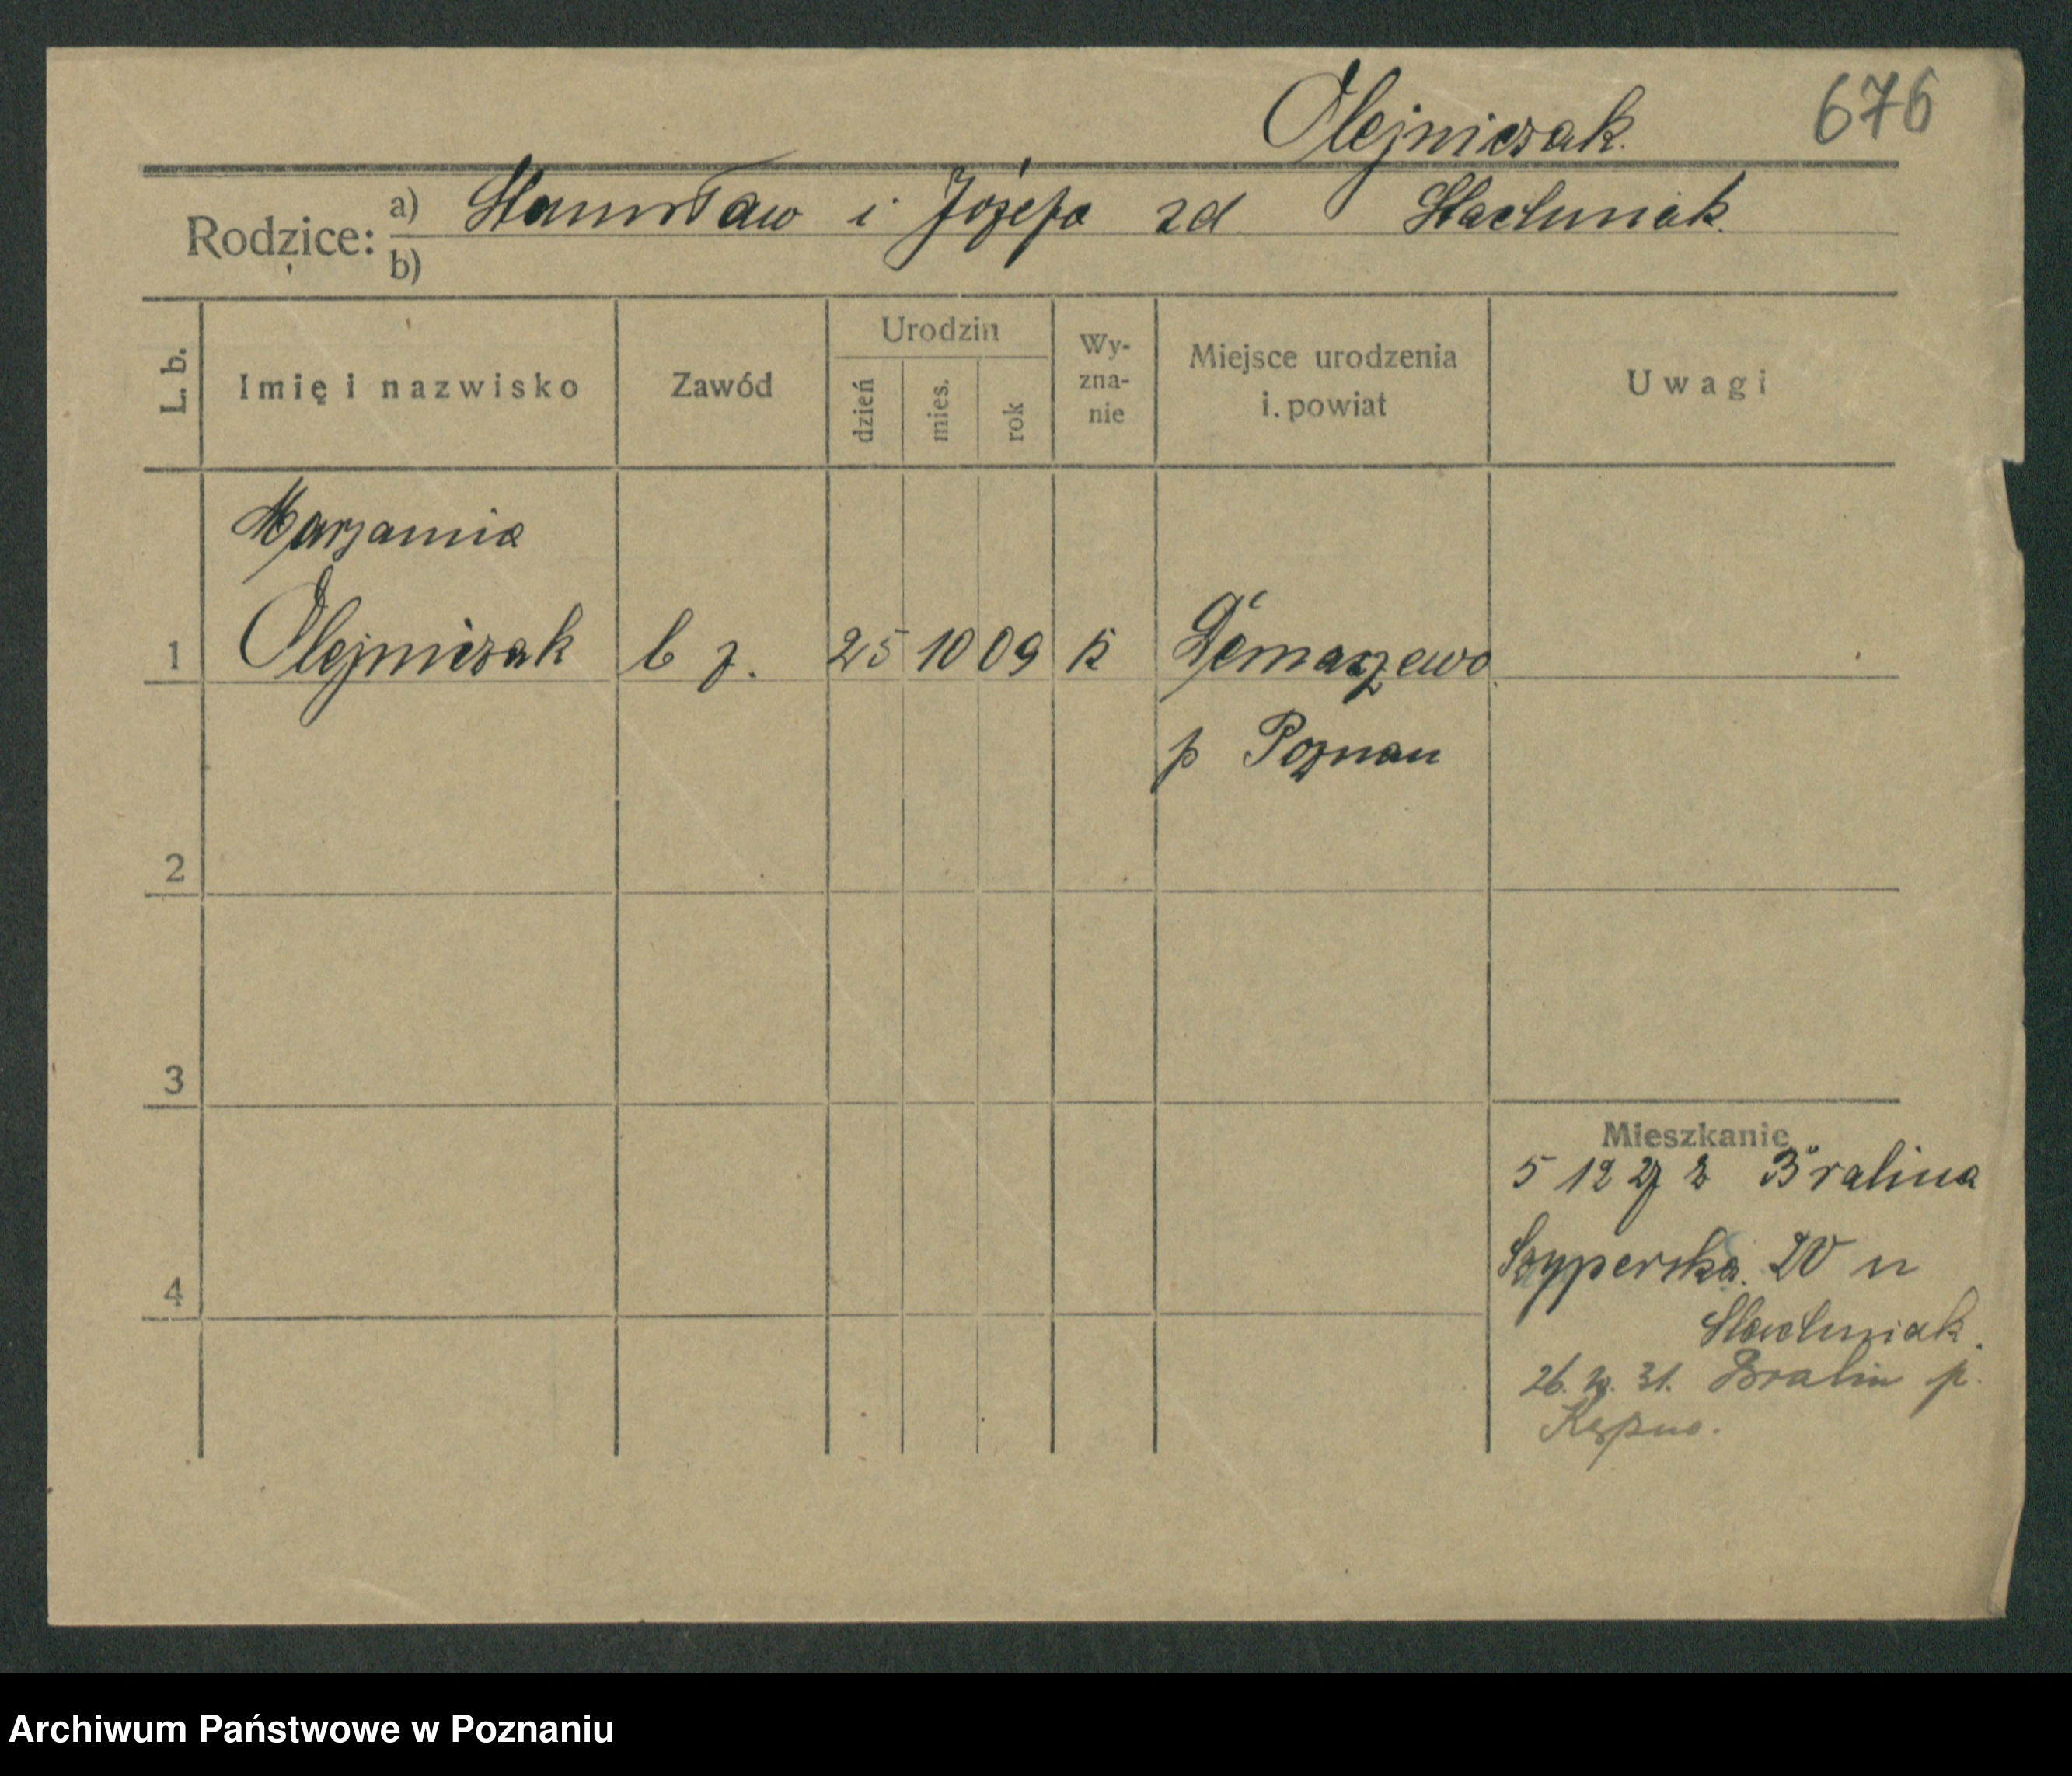 Olejniczak. 676
Rodzice: a) Stanisław i Józefa zd Stachuriak.
b)
L. b. Imię i nazwisko Zawód Urodzin dzień mies. rok Wy-zna-nie Miejsce urodzenia i. powiat Uwagi
Marjanna
1 Olejniczak b z. 25 10 09 K
p Poznan
2
3
Mieszkanie
5 12 29 z Bralina
Szyperska 20 u
4
Stachuriak.
31. Bralin p.
Kępno.
Archiwum Państwowe w Poznaniu